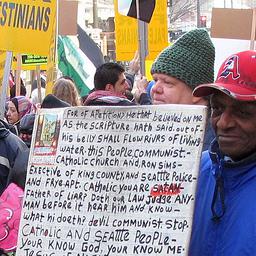 STINIANS
FOR OF A PETITION) HE THAT BELIEVED ON ME
AS THE SCRIPTURE HATH SAID. OUT OF
HIS BELLY SHALL FLOW RIVERS OF LIVING
WATER. THIS PEOPLE COMMUNIST-
CATHOLIC CHURCH AND RON SIMS-
EXECTIVE OF KING COUNTY, AND SEATTLE POLICE-
AND FRYE-APT. CATHOLIC YOU ARE SATAN-
FATHER OF LIAR? DOTH OUR LAW JUDGE ANY-
MAN BEFORE IT HEAR HIM AND KNOW-
WHAT HI DOETH? DEVIL COMMUNIST. STOP-
CATHOLIC AND SEATTLE PEOPLE-
YOUR KNOW GOD, YOUR KNOW ME-
A